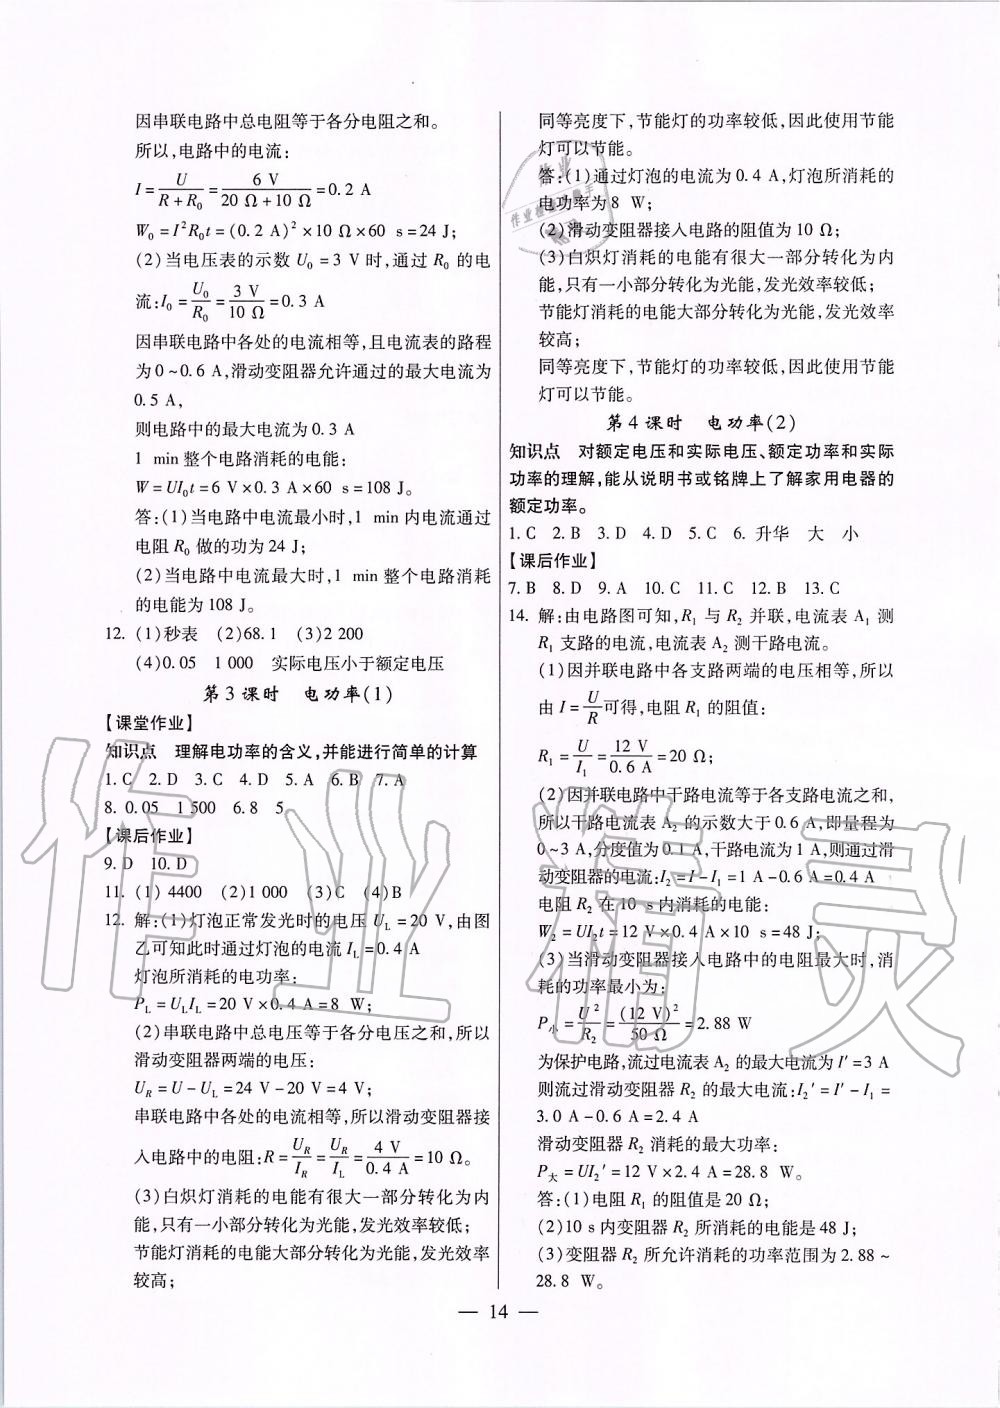 因串联电路中总电阻等于各分电阻之和。
所以,电路中的电流:
I=U/(R+R₀)=6 V/(20 Ω+10 Ω)=0.2 A
W₀=I²R₀t=(0.2 A)²×10 Ω×60 s=24 J;
(2)当电压表的示数 U₀=3 V 时,通过 R₀ 的电
流:I₀=U₀/R₀=3 V/10 Ω=0.3 A
因串联电路中各处的电流相等,且电流表的路程
为 0~0.6 A,滑动变阻器允许通过的最大电流为
0.5 A,
则电路中的最大电流为 0.3 A
1 min 整个电路消耗的电能:
W=UI₀t=6 V×0.3 A×60 s=108 J。
答:(1)当电路中电流最小时,1 min 内电流通过
电阻 R₀ 做的功为 24 J;
(2)当电路中电流最大时,1 min 整个电路消耗
的电能为 108 J。
12. (1)秒表 (2)68.1 (3)2 200
(4)0.05 1 000 实际电压小于额定电压
第 3 课时 电功率(1)
【课堂作业】
知识点 理解电功率的含义,并能进行简单的计算
1. C 2. D 3. C 4. D 5. A 6. B 7. A
8. 0.05 1 500 6.8 5
【课后作业】
9. D 10. D
11. (1) 4400 (2)1 000 (3)C (4)B
12. 解:(1)灯泡正常发光时的电压 U_L=20 V,由图
乙可知此时通过灯泡的电流 I_L=0.4 A
灯泡所消耗的电功率:
P_L=U_LI_L=20 V×0.4 A=8 W;
(2)串联电路中总电压等于各分电压之和,所以
滑动变阻器两端的电压:
U_R=U-U_L=24 V-20 V=4 V;
串联电路中各处的电流相等,所以滑动变阻器接
入电路中的电阻:R=U_R/I_R=U_R/I_L=4 V/0.4 A=10 Ω。
(3)白炽灯消耗的电能有很大一部分转化为内
能,只有一小部分转化为光能,发光效率较低;
节能灯消耗的电能大部分转化为光能,发光效率
较高;
同等亮度下,节能灯的功率较低,因此使用节能
灯可以节能。
答:(1)通过灯泡的电流为 0.4 A,灯泡所消耗的
电功率为 8 W;
(2)滑动变阻器接入电路的阻值为 10 Ω;
(3)白炽灯消耗的电能有很大一部分转化为内
能,只有一小部分转化为光能,发光效率较低;
节能灯消耗的电能大部分转化为光能,发光效率
较高;
同等亮度下,节能灯的功率较低,因此使用节能
灯可以节能。
第 4 课时 电功率(2)
知识点 对额定电压和实际电压、额定功率和实际
功率的理解,能从说明书或铭牌上了解家用电器的
额定功率。
1. C 2. B 3. D 4. D 5. C 6. 升华 大 小
【课后作业】
7. B 8. D 9. A 10. C 11. C 12. B 13. C
14. 解:由电路图可知,R₁ 与 R₂ 并联,电流表 A₁ 测
R₁ 支路的电流,电流表 A₂ 测干路电流。
(1)因并联电路中各支路两端的电压相等,所以
由 I=U/R 可得,电阻 R₁ 的阻值:
R₁=U/I₁=12 V/0.6 A=20 Ω;
(2)因并联电路中干路电流等于各支路电流之和,
所以干路电流表 A₂ 的示数大于 0.6 A,即量程为
0~3 A,分度值为 0.1 A,干路电流为 1 A,则通过滑
动变阻器的电流:I₂=I-I₁=1 A-0.6 A=0.4 A
电阻 R₂ 在 10 s 内消耗的电能:
W₂=UI₂t=12 V×0.4 A×10 s=48 J;
(3)当滑动变阻器接入电路中的电阻最大时,消
耗的功率最小为:
P小=U²/R₂=(12 V)²/50 Ω=2.88 W
为保护电路,流过电流表 A₂ 的最大电流为 I′=3 A
则流过滑动变阻器 R₂ 的最大电流:I₂′=I′-I₁=
3.0 A-0.6 A=2.4 A
滑动变阻器 R₂ 消耗的最大功率:
P大=UI₂′=12 V×2.4 A=28.8 W。
答:(1)电阻 R₁ 的阻值是 20 Ω;
(2)10 s 内变阻器 R₂ 所消耗的电能是 48 J;
(3)变阻器 R₂ 所允许消耗的功率范围为 2.88~
28.8 W。
— 14 —
作业精灵